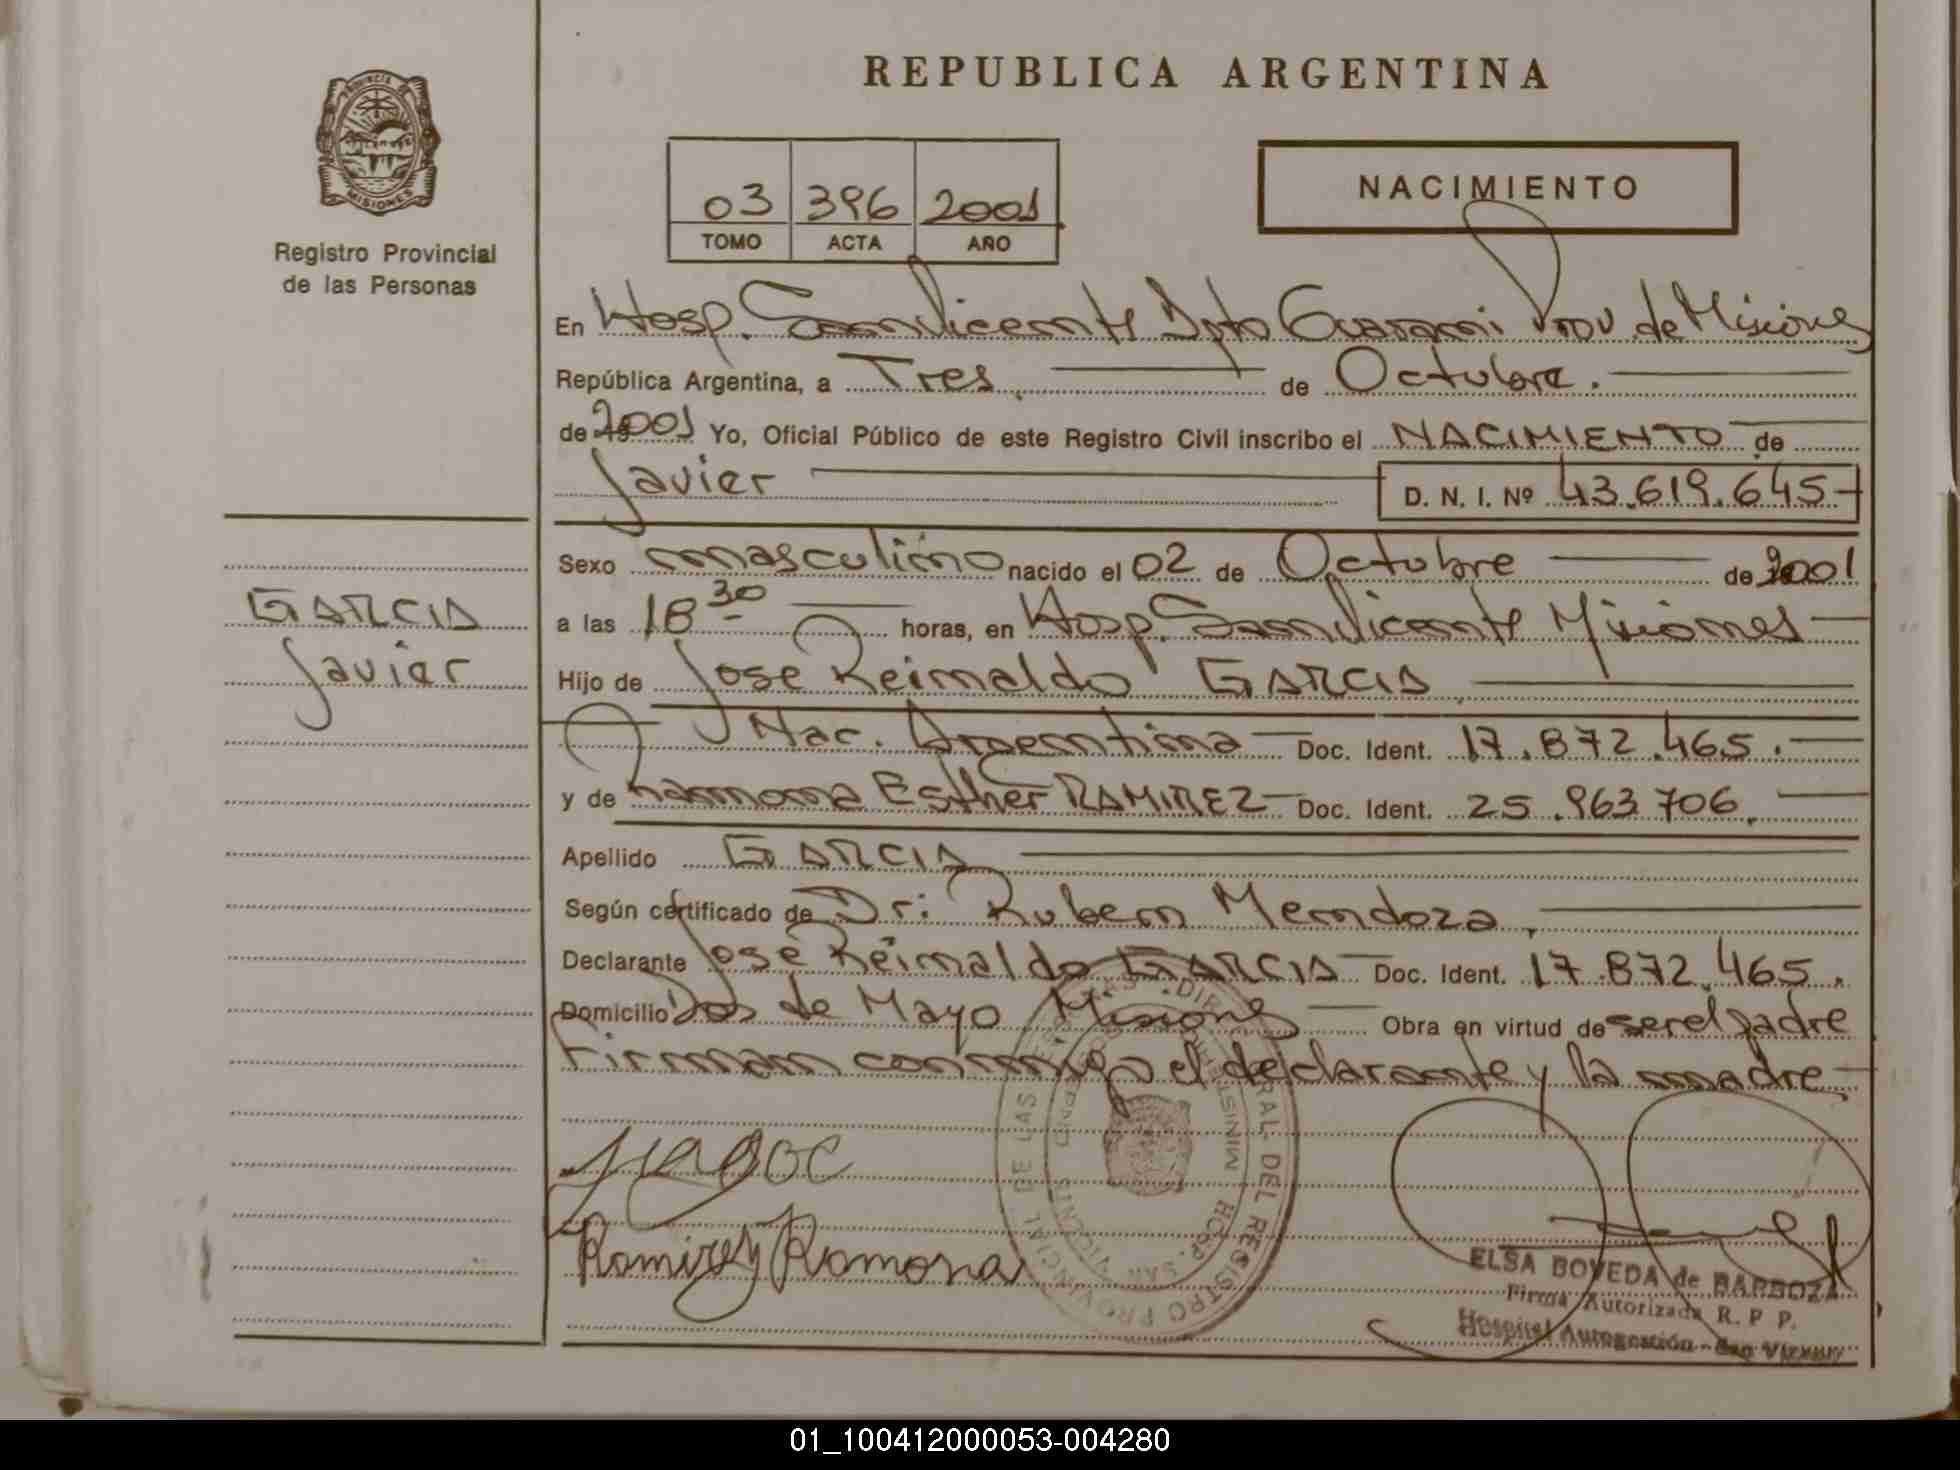 PROVINCIA DE
MISIONES
Registro Provincial
de las Personas
GARCIA
Javier
REPUBLICA ARGENTINA
03 396 2001
TOMO ACTA AÑO
NACIMIENTO
En Hosp. San Vicente Dpto Guarani Prov. de Misiones
República Argentina, a Tres de Octubre.
de 2001 Yo, Oficial Público de este Registro Civil inscribo el NACIMIENTO de
Javier D. N. I. Nº 43.619.645
Sexo masculino nacido el 02 de Octubre de 2001
a las 18 30 horas, en Hosp. San Vicente Misiones
Hijo de Jose Reinaldo GARCIA
Nac. Argentina Doc. Ident. 17.872.465.
y de Ramona Esther RAMIREZ Doc. Ident. 25.963 706.
Apellido GARCIA
Según certificado de Dr: Ruben Mendoza.
Declarante Jose Reinaldo GARCIA Doc. Ident. 17.872.465.
Domicilio Dos de Mayo Misiones Obra en virtud de ser el padre
Firman conmigo el declarante y la madre
Ramirez Ramona
DIR GRAL. DEL REGISTRO PROVINCIAL DE LAS
MINISTE HOSP. SAN VICENTE
ELSA BOVEDA de BARBOZA
Firma Autorizada R. P P.
Hospital Autogestión - San Vicente
01_100412000053-004280